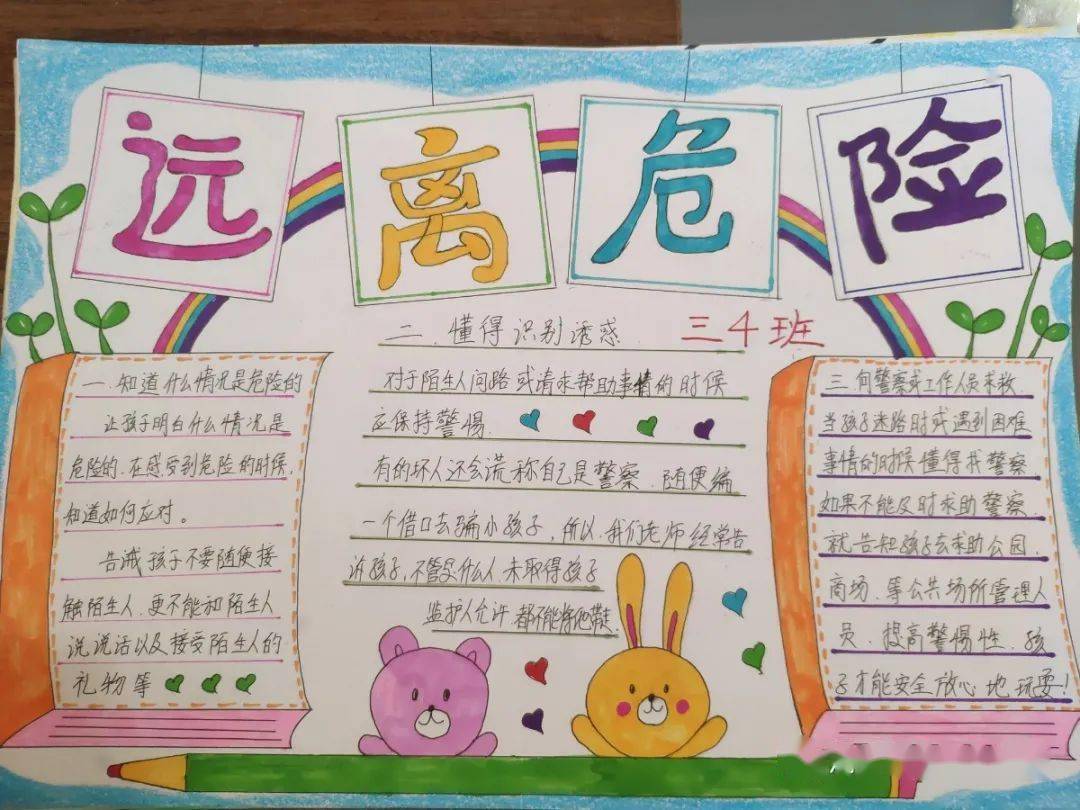 远离危险
三4班
一.知道什么情况是危险的
让孩子明白什么情况是
危险的.在感受到危险的时候,
知道如何应对。
告诫孩子不要随便接
触陌生人.更不能和陌生人
说说话以及接受陌生人的
礼物等
二.懂得识别诱惑.
对于陌生人问路或请求帮助事情的时候
应保持警惕.
有的坏人还会谎称自己是警察.随便编
一个借口去骗小孩子,所以.我们老师经常告
诉孩子,不管是什么人.未取得孩子
监护人允许.都不能将他带走.
三.向警察或工作人员求救.
当孩子迷路时或遇到困难
事情的时候懂得找警察.
如果不能及时求助警察.
就告知孩子去求助公园.
商场.等公共场所管理人
员.提高警惕性.孩
子才能安全放心地玩耍!